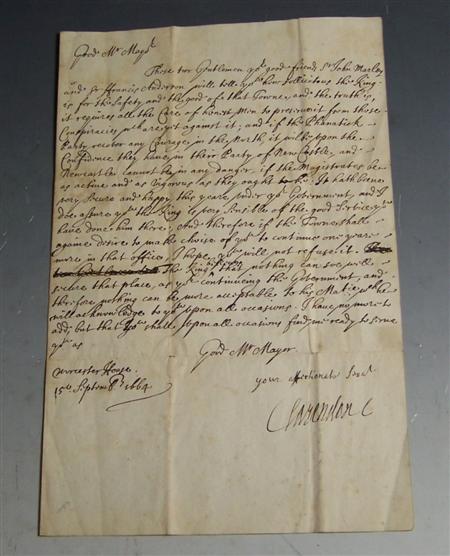 Good Mr Mayr
These two Gentlemen yr good friends Sr John Marley
and Sr Francis Anderson will tell yu how sollicitous the King
is for the Safety and the good of that Towne, and the truth is,
it requires all the Care of honest Men to preserve it from those
Conspiracies wch are yet against it; and if the Phanatick
Party recover any Courage in the North, it wilbe upon the
Confidence they have in their Party of New Castle, and
Newcastle cannot be in any danger, if the Magistrates be
as active and as vigorous as they ought to be. It hath beene
very secure and happy this yeare under yr Government, and I
do assure yu the King is very sensible of the good service yu
have done him there; And therefore if the Towne shall
againe desire to make choise of yu to continue one yeare
more in that office, I hope yu will not refuse it.
The King that nothing can soe well
secure that place, as yr continueing the Government, and
therefore nothing can be more acceptable to his Matie wch he
will acknowledge to yu upon all occasions. I have no more to
add, but that yu shall upon all occasions find me ready to serve
yu as
Good Mr Mayor.
Worcester House
15th Septemb 1664
your affectionate
Clarendon C